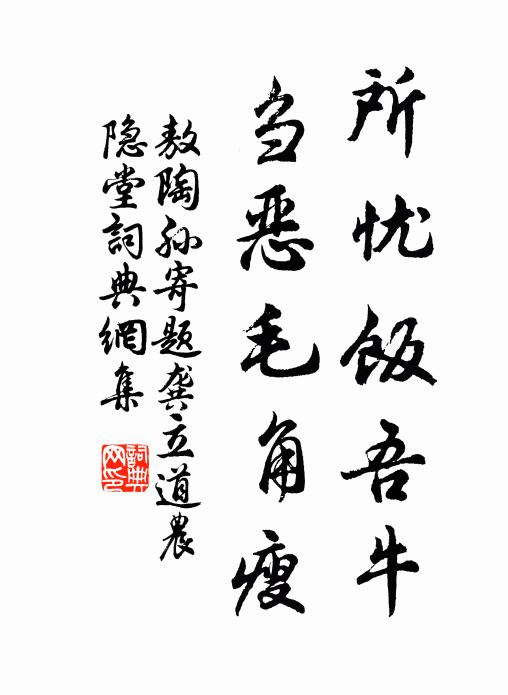 所忧饭吾牛
刍恶毛角瘦
敖陶孙寄题龚立道农
隐堂詞典網集
詞典网印